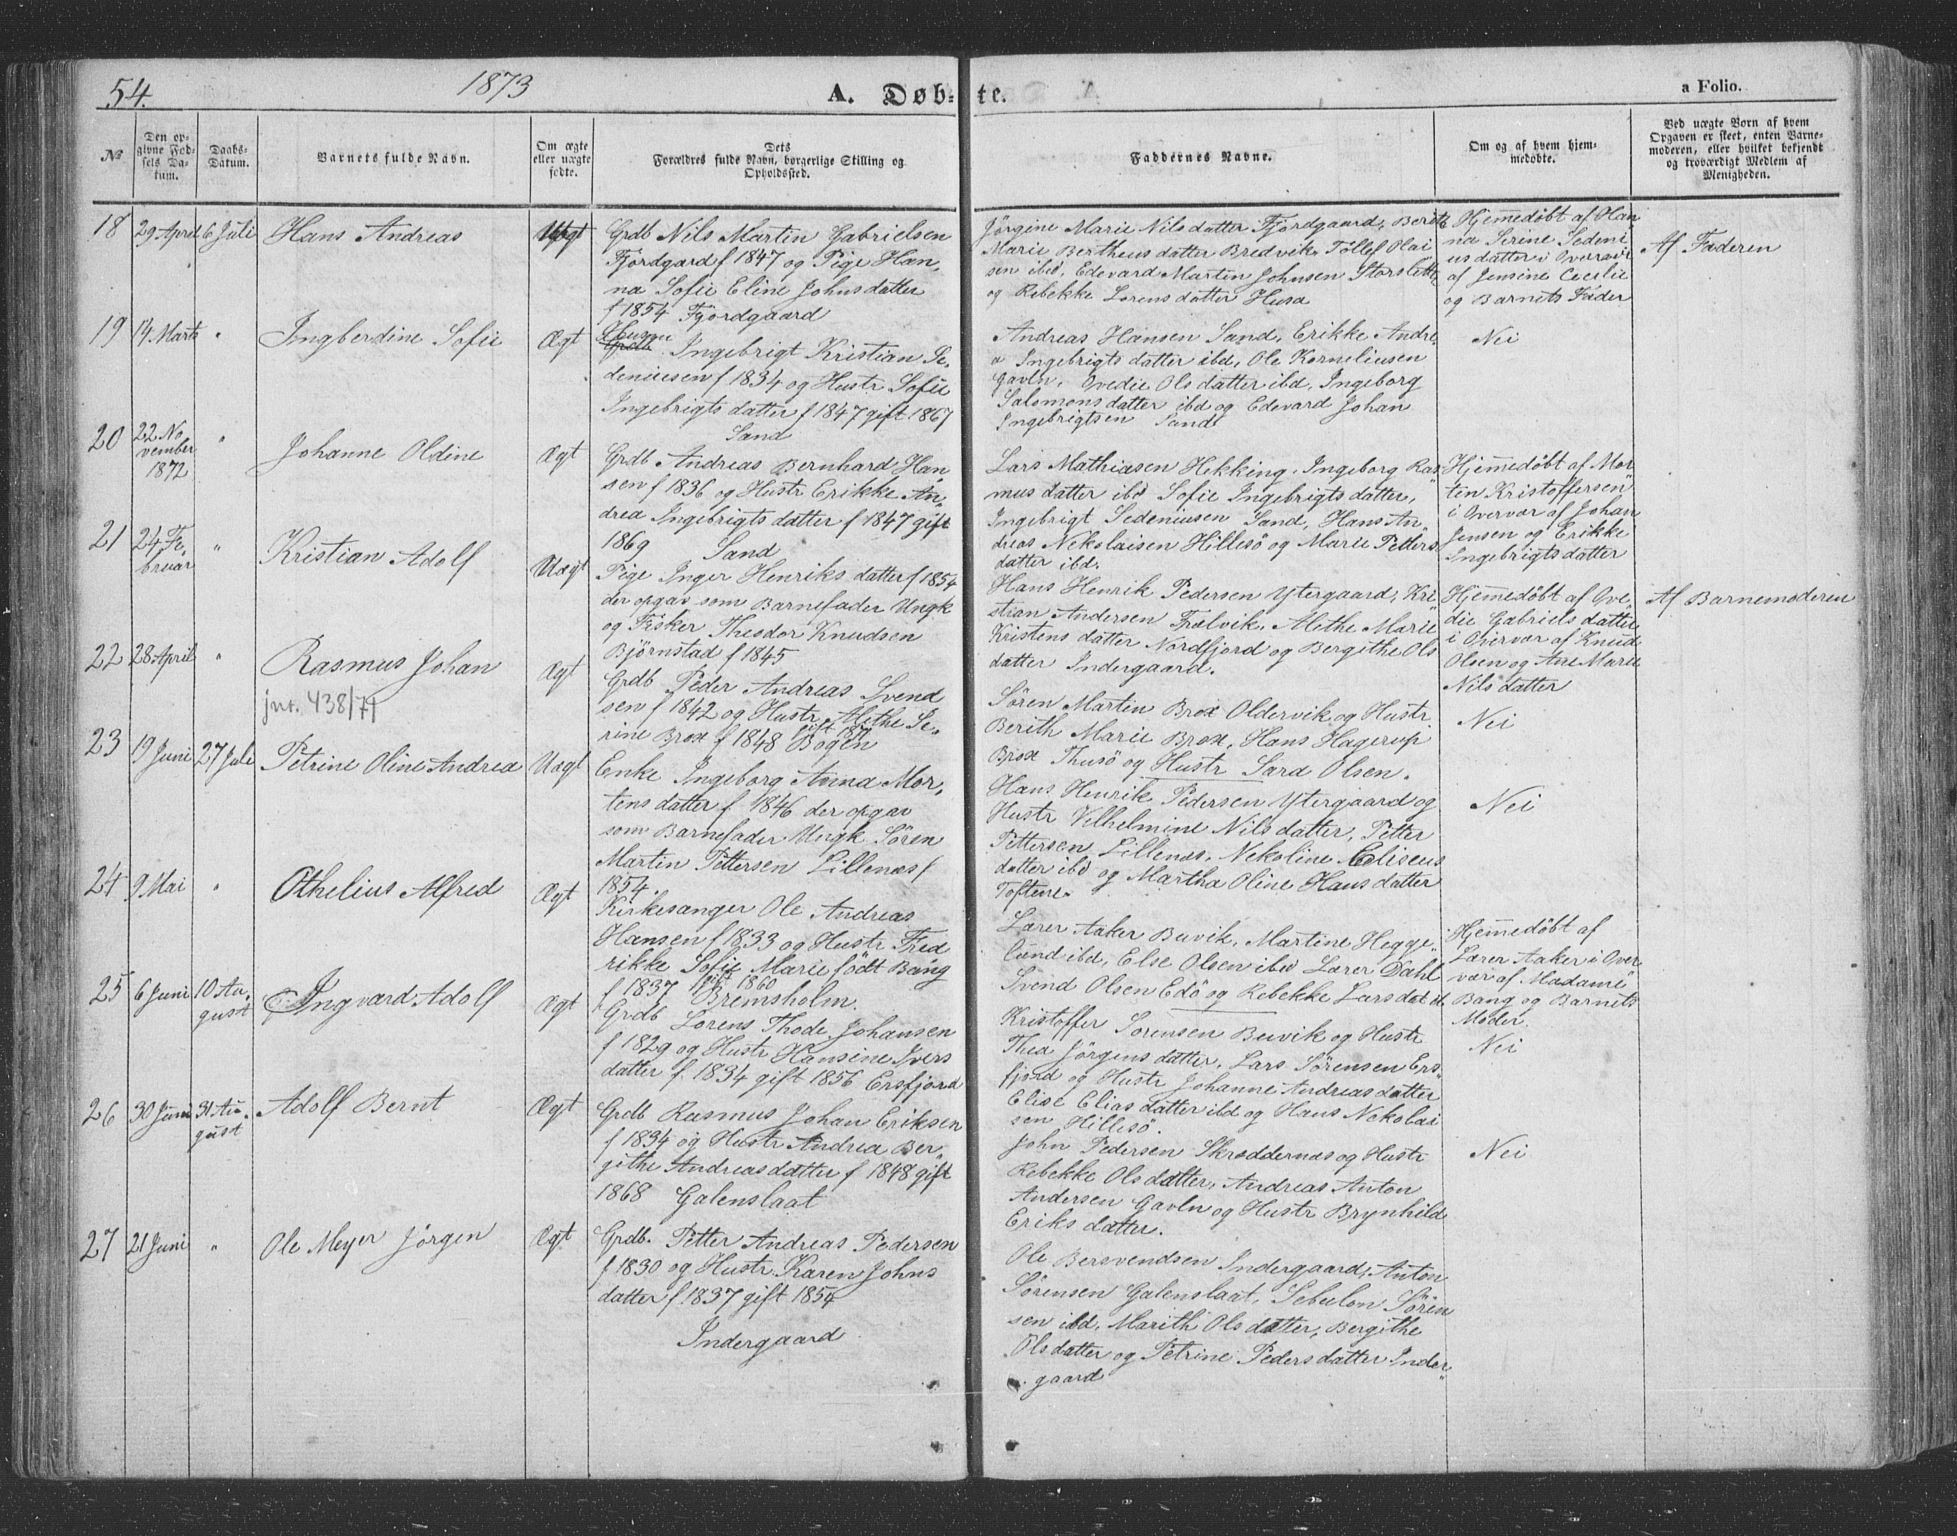 54.
1873
A. Døbte.
a Folio.
№
Den op-
givne Fød-
sels Da-
tum.
Daabs-
Datum.
Barnets fulde Navn.
Om ægte
eller uægte
fødte.
Dets
Forældres fulde Navn, borgerlige Stilling og
Opholdssted.
Faddernes Navne.
Om og af hvem hjem-
medøbte.
Ved uægte Børn af hvem
Opgaven er skeet, enten Barne-
moderen, eller hvilket bekjendt
og troværdigt Medlem af
Menigheden.
18
29 April
6 Juli
Hans Andreas
Uægt
Grdb Nils Martin Gabrielsen
Fjordgaard f 1847 og Pige Han,
na Sofie Eline Johnsdatter
f 1854 Fjordgaard
Jørgine Marie Nilsdatter Fjordgaard, Berith
Marie Bertheusdatter Bredvik, Tollef Olai
sen ibd, Edevard Martin Johnsen Storslett
og Rebekke Lorensdatter Husa
Hjemmedøbt af Han
na Serine Sedeni
us datter i Overvær
af Jensine Cecilie
og Barnets Fader
Af Faderen
19
14 Marts
"
Ingberdine Sofie
Ægt
Husm
Grdb Ingebrigt Kristian Se,
deniusen f 1834 og Hustr Sofie
Ingebrigtsdatter f 1847 gift 1867
Sand
Andreas Hansen Sand, Erikke Andre,
a Ingebrigtsdatter ibd, Ole Korneliusen
Gavln, Ovedie Olsdatter ibd, Ingeborg
Salomonsdatter ibd og Edevard Johan
Ingebrigtsen Sand
Nei
20
22 No
vember
1872
"
Johanne Oldine
Ægt
Grdb Andreas Bernhard Han
sen f 1836 og Hustr Erikke An,
drea Ingebrigtsdatter f 1847 gift
1869 Sand
Lars Mathiasen Hekking, Ingeborg Ras
mus datter ibd Sofie Ingebrigtsdatter,
Ingebrigt Sedeniusen Sand, Hans An
dreas Nekolaisen Hillesö og Marie Petters
datter ibd.
Hjemmedøbt af Mor
ten Kristoffersen
i Overvær af Johan
Jensen og Erikke
Ingebrigtsdatter
21
24 Fe
bruar
"
Kristian Adolf
Uægt
Pige Inger Henriksdatter f 1854
der opgav som Barnefader Ungk
og Fisker Theodor Knudsen
Björnstad f 1845
Hans Henrik Pedersen Ytergaard, Kri
stian Andersen Trælvik, Alethe Marie
Kristensdatter Nordfjord og Bergithe Ols
datter Indergaard.
Hjemmedøbt af Ove,
die Gabrielsdatter
i Overvær af Knud
Olsen og Ane Marie
Nilsdatter
Af Barnemoderen
22
28 April
"
Rasmus Johan
jnr. 438/71
Ægt
Grdb Peder Andreas Svend
sen f 1842 og Hustr Alethe Se,
rine Brox f 1848 Bogen
Sören Martin Brox Oldervik og Hustr
Berith Marie Brox, Hans Hagerup
Brox Thusö og Hustr Sara Olsen.
Nei
23
19 Juni
27 Juli
Petrine Oline Andrea
Uægt
Enke Ingeborg Anna Mor,
tensdatter f 1846 der opgav
som Barnefader Ungk Sören
Martin Pettersen Lillenæs f
1854.
Hans Henrik Pedersen Ytergaard og
Hustr Velhelmine Nilsdatter, Petter
Pettersen Lillenæs, Nekoline Eliseus
datter ibd og Martha Oline Hansdatter
Toftene
Nei
24
9 Mai
"
Othelius Alfred
Ægt
Kirkesanger Ole Andreas
Hansen f 1833 og Hustr Fred
rikke Sofie Marie födt Bang
f 1837 gift 1860 Bremsholm.
Lærer Aaker Buvik, Martine Hegge,
lund ibd, Else Olsen ibd Lærer Dahl
Svend Olsen Edö og Rebekke Larsdat it
Hjemmedøbt af
Lærer Aaker i Over
vær af Madame
Bang og Barnets
Moder
25
6 Juni
10 Au,
gust
Ingvard Adolf
Ægt
Grdb Lorens Thode Johansen
f 1829 og Hustr Hansine Ivers
datter f. 1834 gift 1856 Ersfjord
Kristoffer Sorensen Buvik og Hustr
Thea Jörgensdatter, Lars Sörensen Ers,
fjord og Hustr Johanne Andreasdatter
Elise Eliasdatter ibd og Hans Nekolai
sen Hillesö.
Nei
26
30 Juni
31 Au,
gust
Adolf Bernt
Ægt
Grdb Rasmus Johan Eriksen
f 1834 og Hustr Andrea Ber,
githe Andreasdatter f 1848 gift
1868 Galenslaat
John Pedersen Skreddernæs og Hustr
Rebekke Olsdatter, Andreas Anton
Andersen Gavln og Hustr Brynhild
Eriksdatter.
Nei
27
21 Juni
"
Ole Meyer Jörgen
Ægt
Grdb. Petter Andreas Pedersen
f 1830 og Hustr. Karen Johns
datter f. 1837 gift 1854
Indergaard
Ole Bersvendsen Indergaard, Anton
Sörensen Galenslaat, Sebulon Sören
sen ibd, Marith Olsdatter, Bergithe
Olsdatter og Petrine Pedersdatter Inder,
gaard